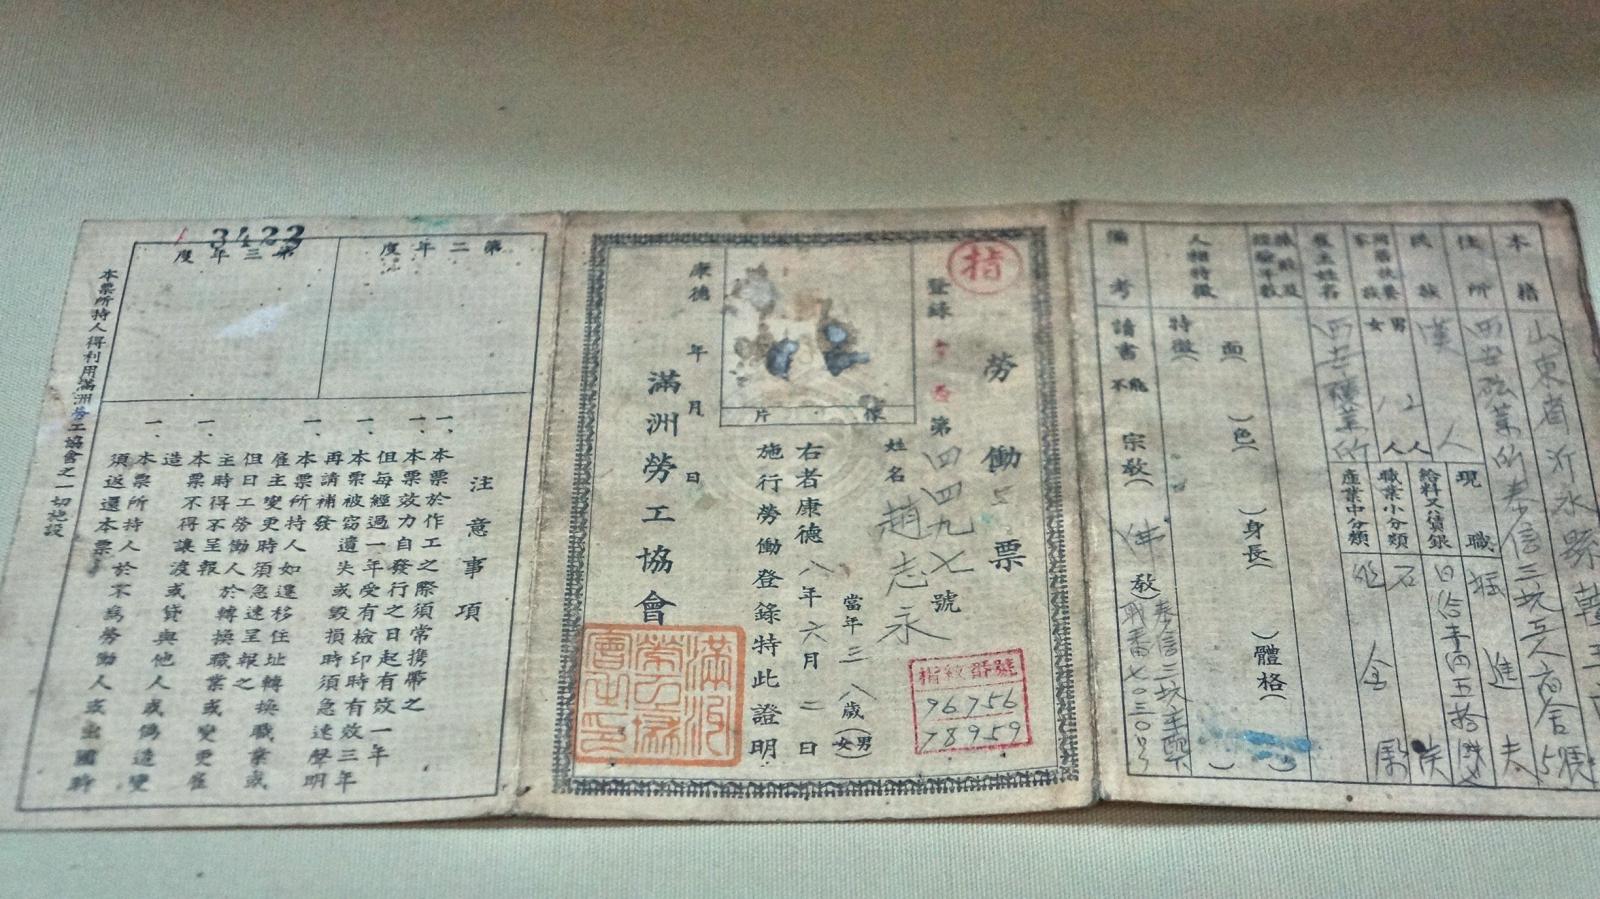 本籍
山東省沂水縣
住所
西安砿業所泰信三坑工人宿舍5號
民族
漢人
男 人
女 人
雇主姓名
西安礦業所
現職
掘進夫
給料又ハ賃銀
職業小分類
產業中分類
人相特徵
面（色）身長（）體格（）
特徵（
備考
讀書不能
宗教（佛教）
指
勞働票
登錄
第四四九七號
像片
姓名
趙志永
當年三八歲（男女）
右者康德八年六月二日
施行勞働登錄特此證明
康德 年 月 日
滿洲勞工協會
滿洲勞工協會之印
指紋番號
96756
78959
第二年度
第三年度
3422
注意事項
一、本票於作工之際須常携帶之
一、本票效力自發行之日起有效一年
但每經過一年受有檢印時有效三年
一、本票被窃遺失或毀損時須急速聲明
再請補發
一、本票所持人如遷移住址轉換職業或
雇主變更時須急速呈報之
但日工勞働人於轉換職業或變更雇
主時得不呈報
一、本票不得讓渡或貸與他人或偽造變
造
一、本票所持人於不為勞働人或出國時
須返還本票
本票所持人得利用滿洲勞工協會之一切施設